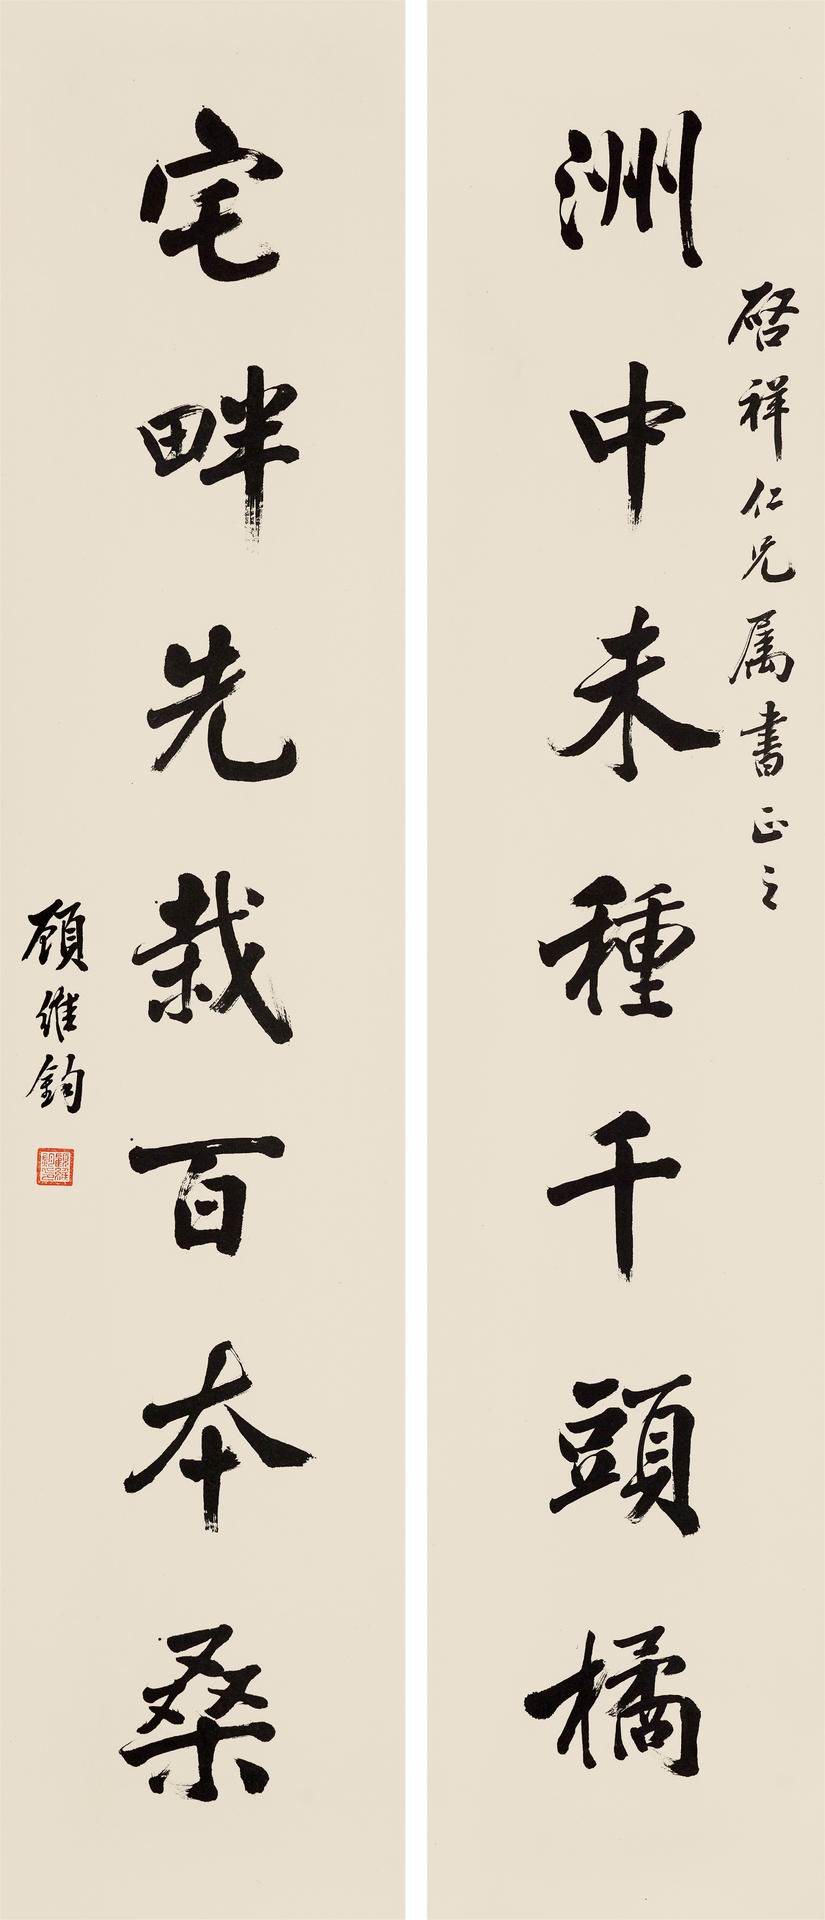 啓祥仁兄属書正之
洲中未種千頭橘
宅畔先栽百本桑
顧維鈞